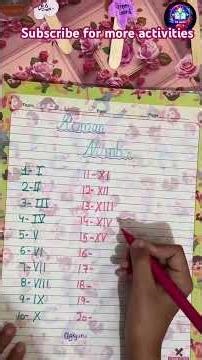 Subscribe for more activities
Roman
Number
1- I
2- II
3- III
4- IV
5- V
6- VI
7- VII
8- VIII
9- IX
10- X
11- XI
12- XII
13- XIII
14- XIV
15- XV
16-
17-
18-
19-
20-